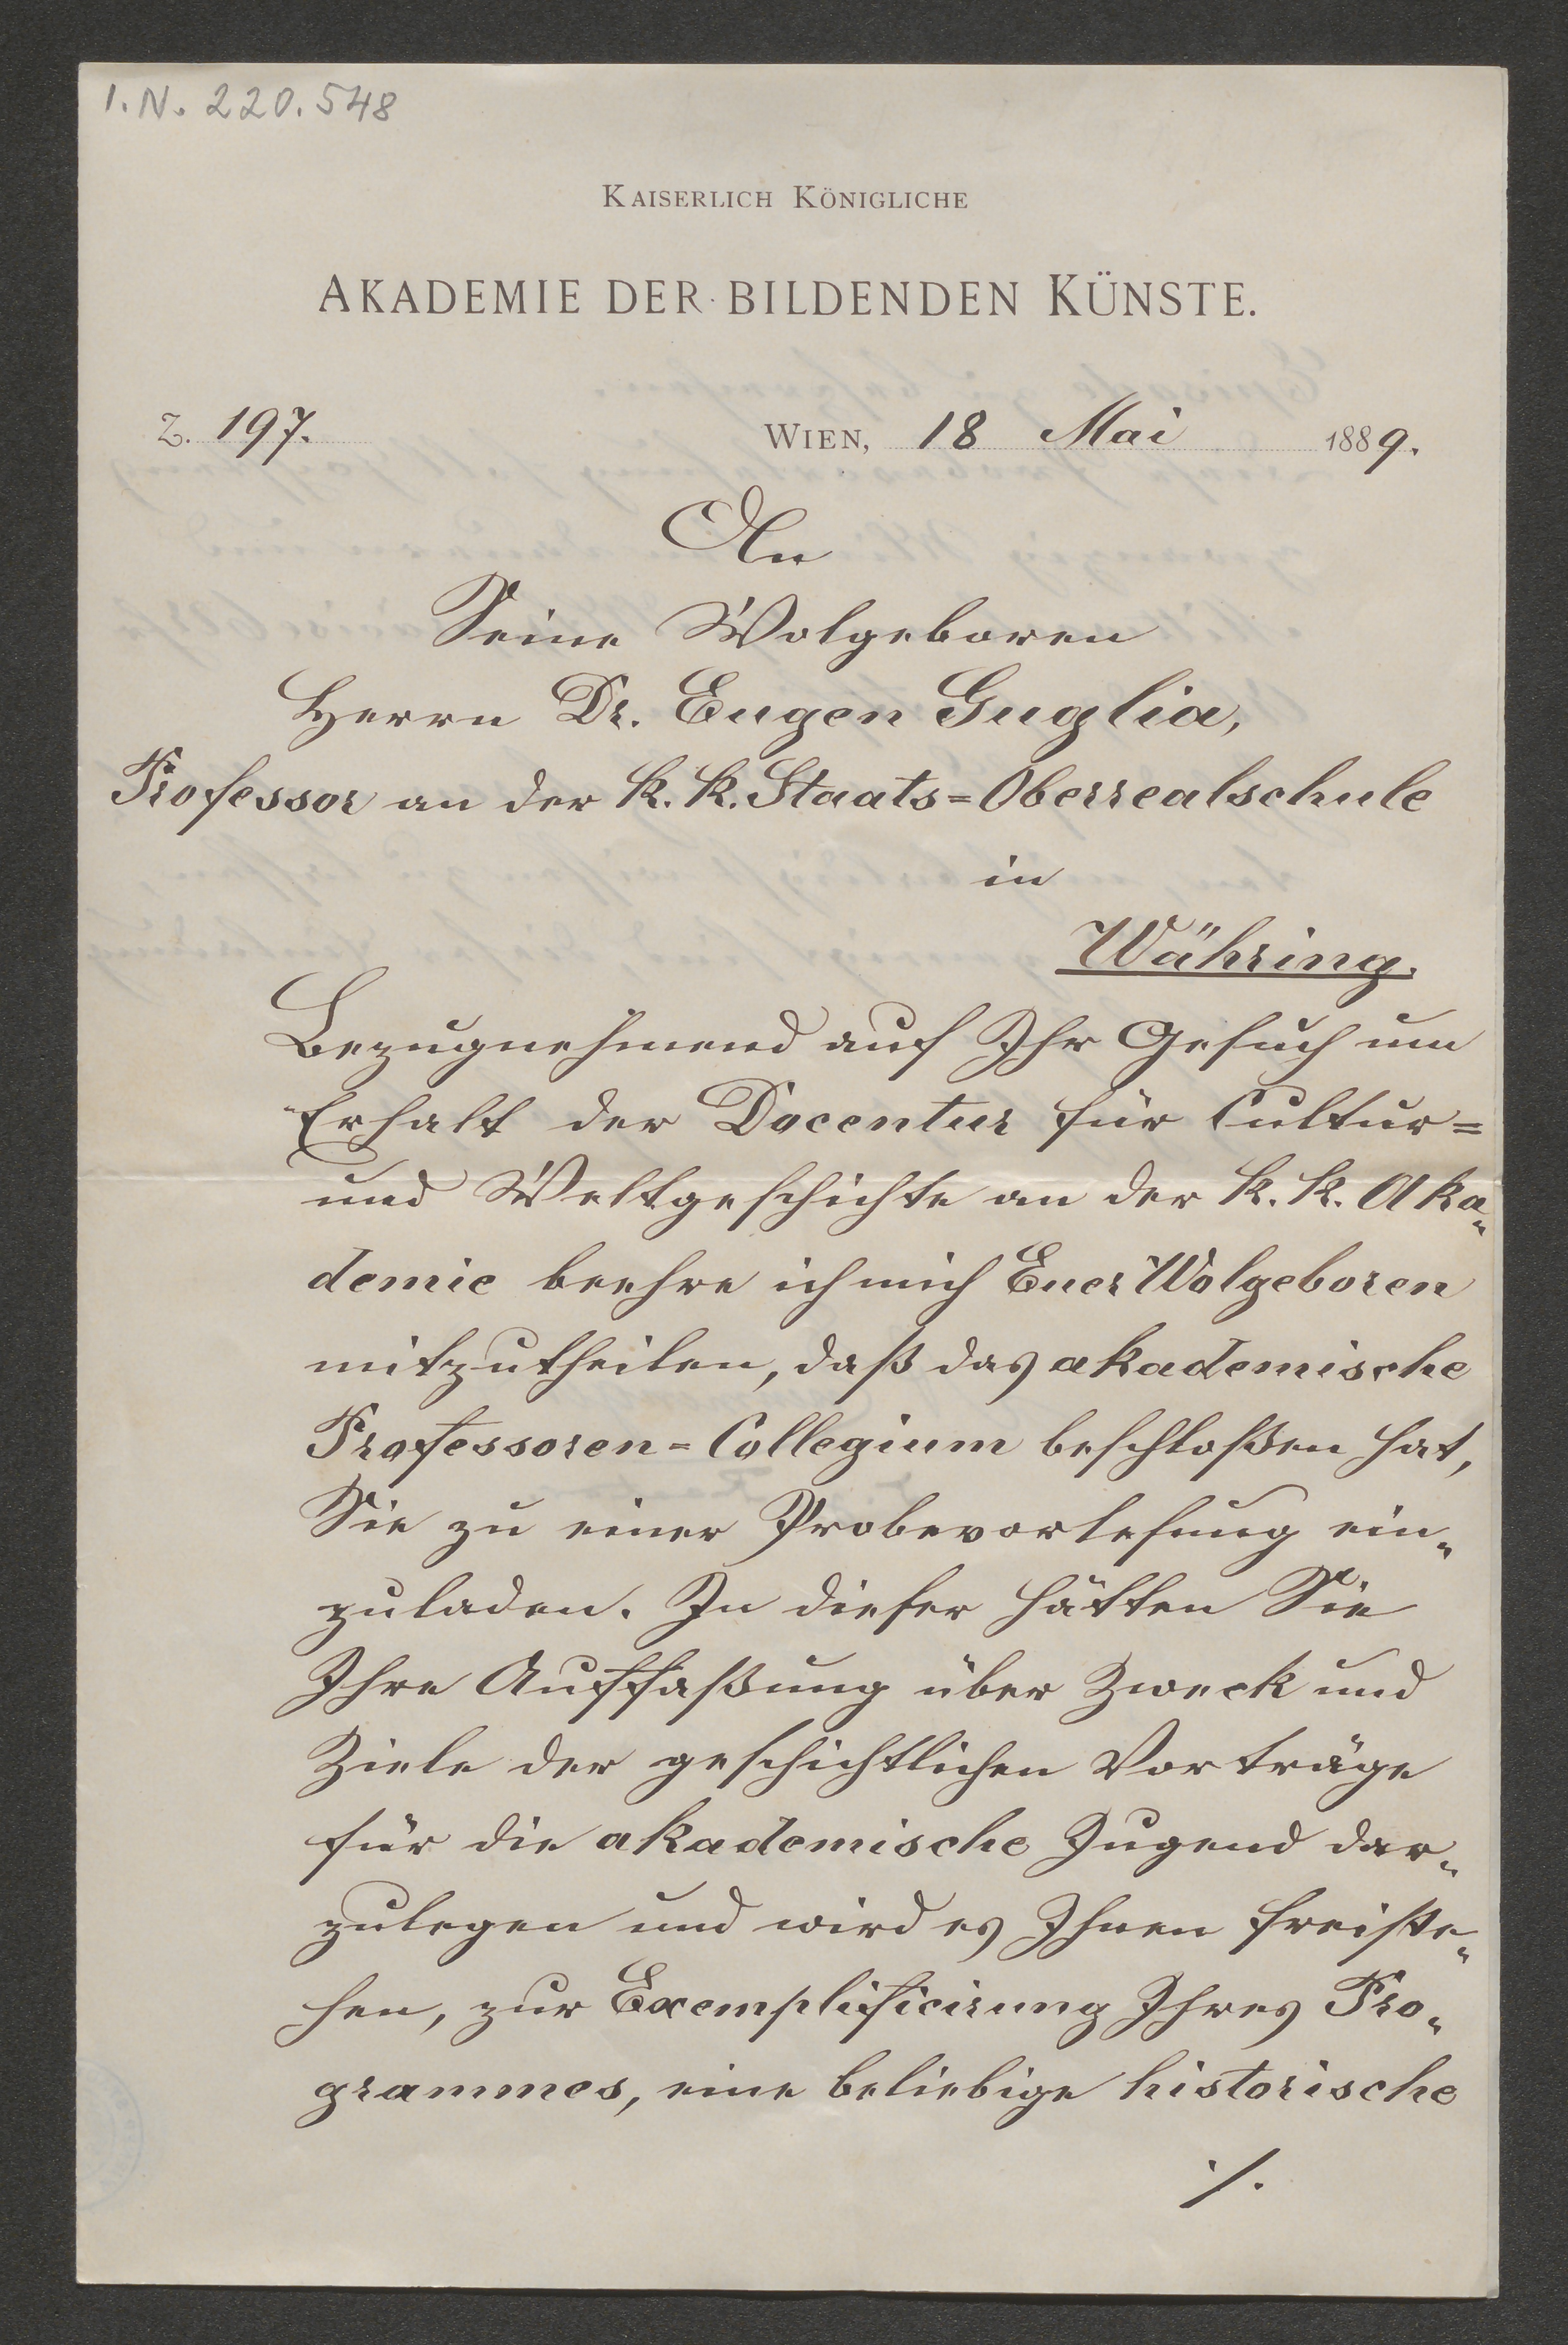 I.N. 220.548
KAISERLICH KÖNIGLICHE
AKADEMIE DER BILDENDEN KÜNSTE.
Z. 197.
WIEN, 18 Mai 1889.
An
Seine Wolgeboren
Herrn Dr. Eugen Guglia,
Professor an der k. k. Staats=Oberrealschule
in
Währing.
Bezugnehmend auf Ihr Gesuch um
Erhalt der Docentur für Cultur=
und Weltgeschichte an der k. k. Aka„
demie beehre ich mich Euer Wolgeboren
mitzutheilen, daß das akademische
Professoren=Collegium beschloßen hat,
Sie zu einer Probevorlesung ein„
zuladen. In dieser hätten Sie
Ihre Auffaßung über Zweck und
Ziele der geschichtlichen Vorträge
für die akademische Jugend dar„
zulegen und wird es Ihnen freiste„
hen, zur Exemplificirung Ihres Pro„
grammes, eine beliebige historische
./.